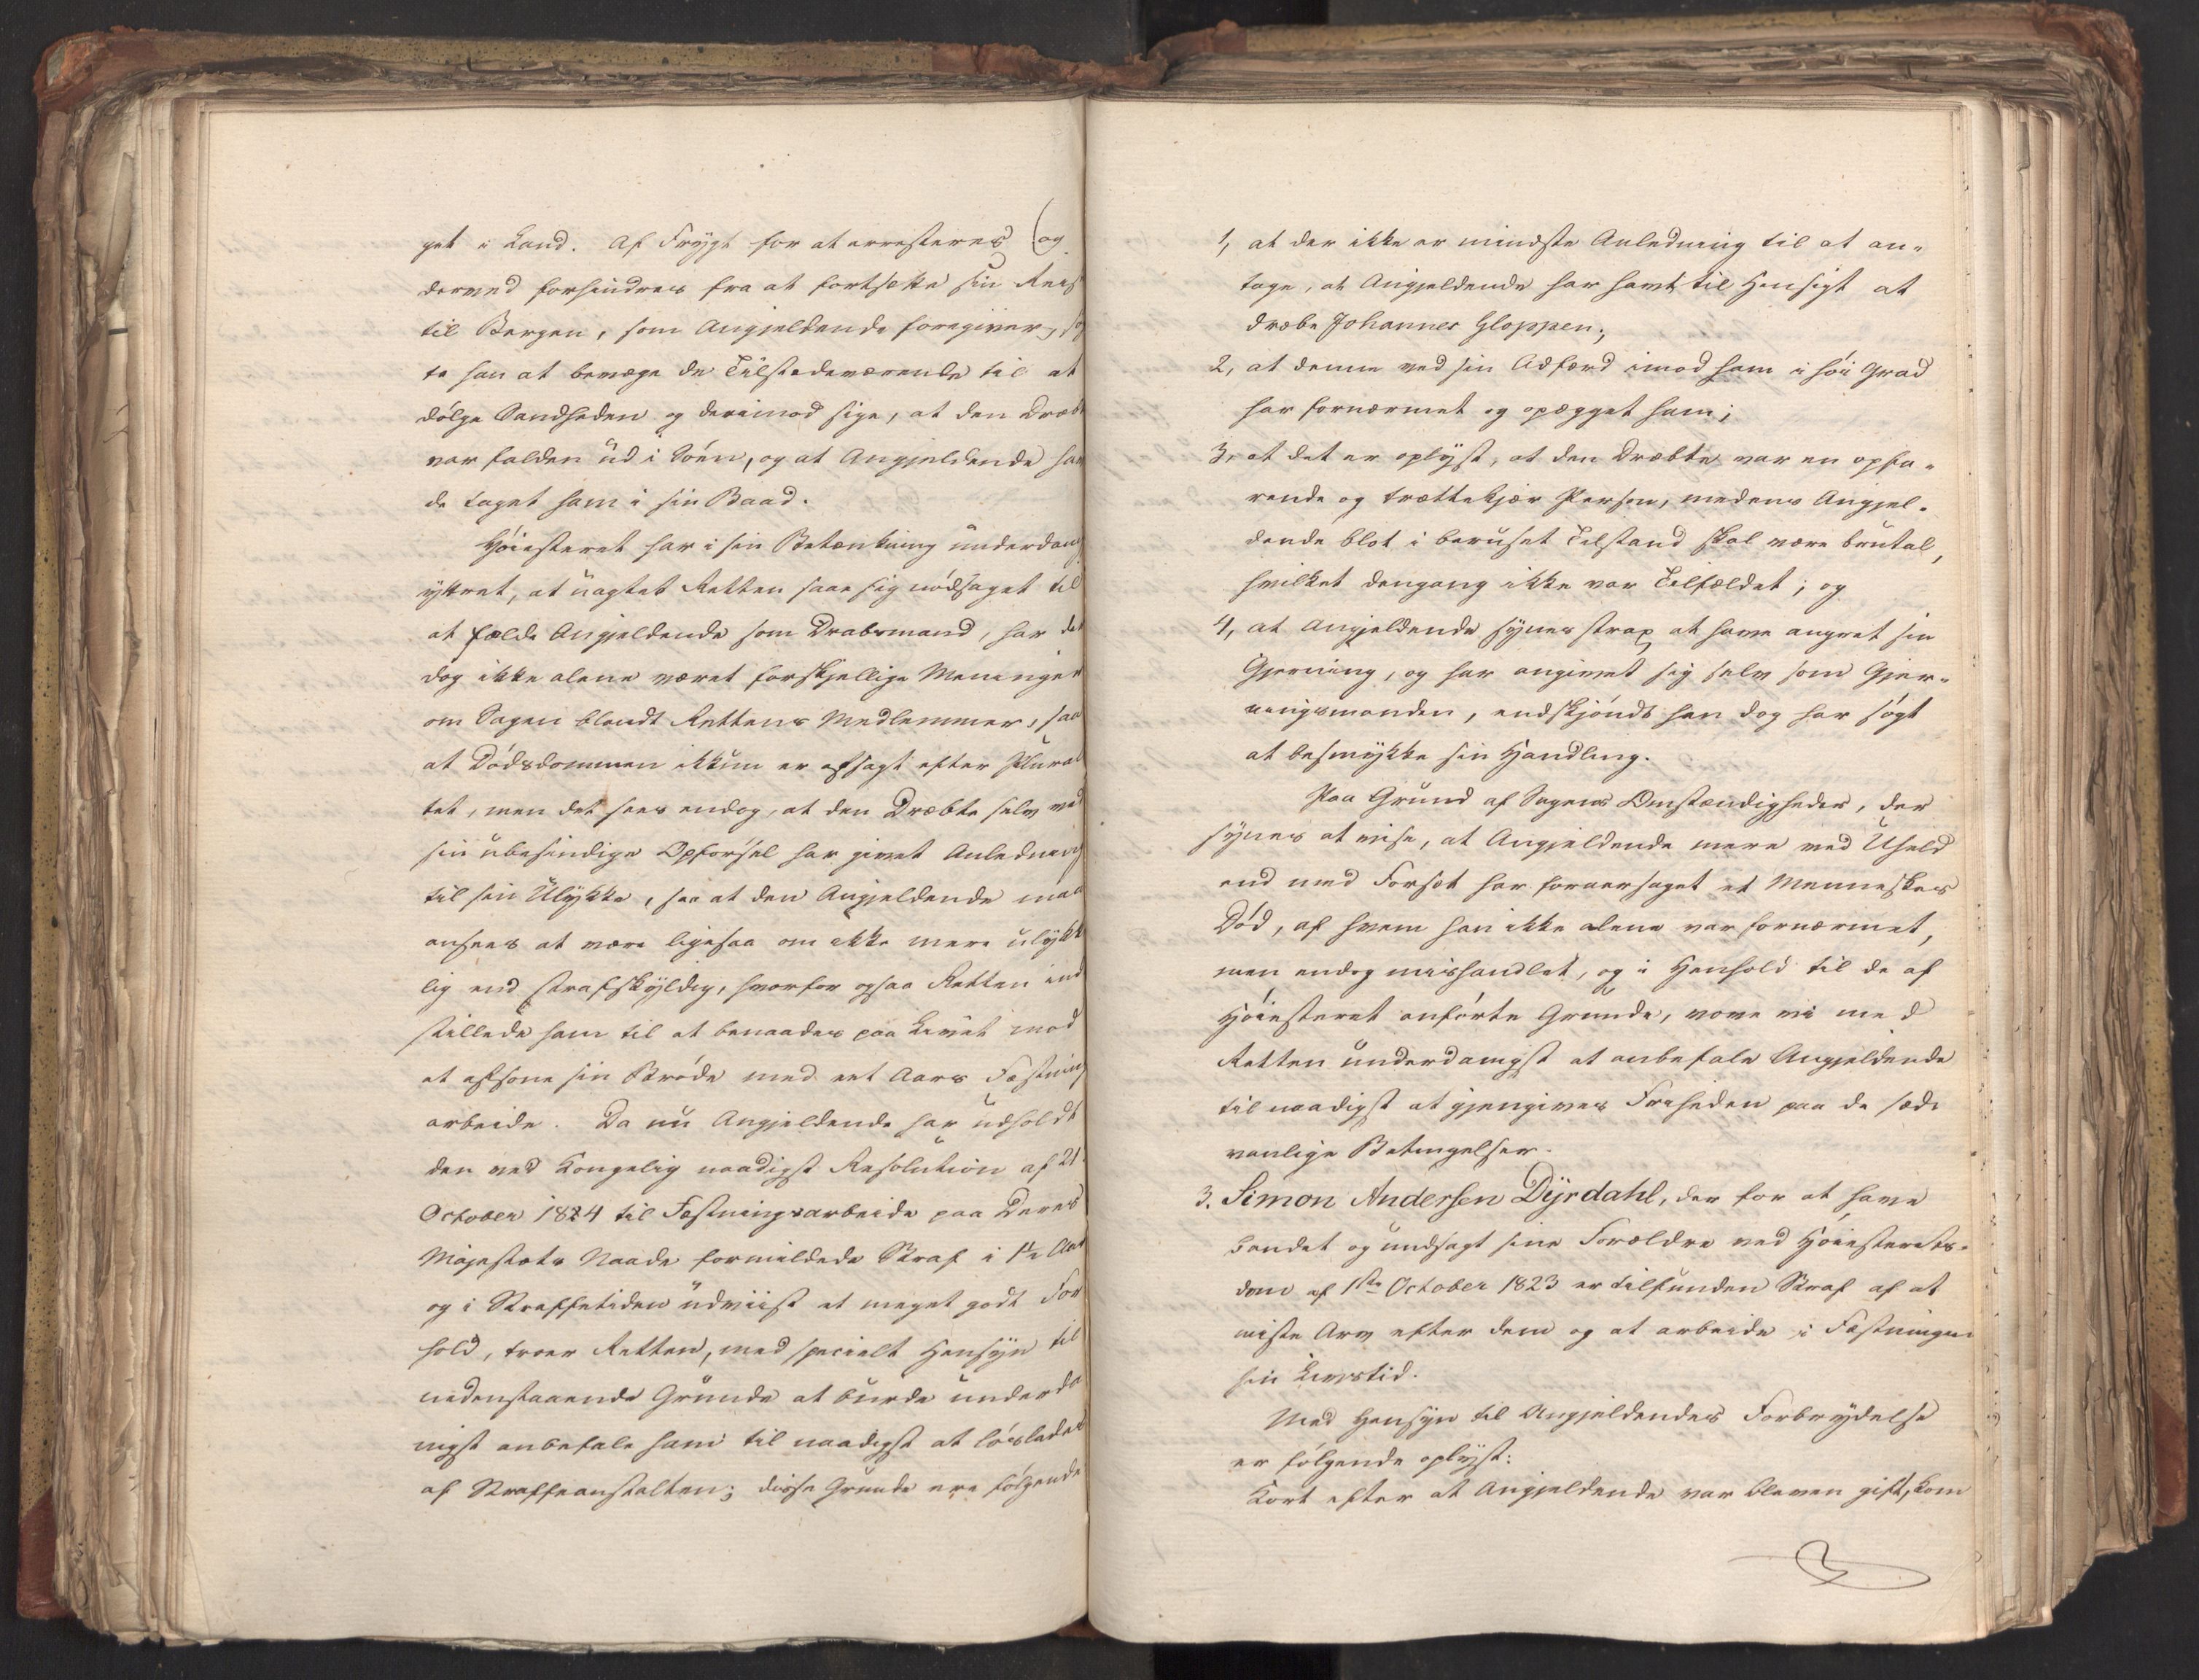 get i Land. Af Frygt for at arresteres (og
derved forhindres fra at fortsætte sin Reis
til Bergen, som Angjeldende foregiver, søg
te han at bevæge de Tilstedeværende til at
dölge Sandheden og derimod sige, at den Dræbt
var falden ud i Söen, og at Angjeldende hav
de taget ham i sin Baad.
Höiesteret har i sin Betænkning underdanig
yttret, at uagtet Retten saae sig nödsaget til
at fælde Angjeldende som Drabsmand, har det
dog ikke alene været forskjellige Meninger
om Sagen blandt Rettens Medlemmer, saa
at Dödsdommen ikkun er afsagt efter Plural
tet, men det sees endog, at den Dræbte selv ved
sin ubesindige Opförsel har givet Anledning
til sin Ulykke, saa at den Angjeldende maa
ansees at være ligesaa om ikke mere ulykk
lig end strafskyldig, hvorfor ogsaa Retten ind
stillede ham til at benaades paa Livet mod
at afsone sin Bröde med eet Aars Fæstning
arbeide. Da nu Angjeldende har udholdt
den ved Kongelig naadigst Resolution af 21
October 1824 til Fæstningsarbeide paa Deres
Majestæts Naade formildede Straf i 1½ Aar
og i Straffetiden udviist et meget godt For
hold, troer Retten, med specielt Hensyn til
nedenstaaende Grunde at burde underda
nigst anbefale ham til naadigst at löslades
af Straffeanstalten; disse Grunde ere fölgende
1, at der ikke er mindste Anledning til at an-
tage, at Angjeldende har havt til Hensigt at
dræbe Johannes Gloppen;
2, at denne ved sin Adfærd imod ham i höi Grad
har fornærmet og opægget ham;
3, at det er oplyst, at den Dræbte var en opfa-
rende og trættekjær Person, medens Angjel-
dende blot i beruset Tilstand skal være brutal,
hvilket dengang ikke var Tilfældet; og
4, at Angjeldende synes strax at have angret sin
Gjerning, og har angivet sig selv som Gjer-
ningsmanden, endskjöndt han dog har sögt
at besmykke sin Handling.
Paa Grund af Sagens Omstændigheder, der
synes at vise, at Angjeldende mere ved Uheld
end med Forsæt har foraarsaget et Menneskes
Död, af hvem han ikke alene var fornærmet,
men endog mishandlet, og i Henhold til de af
Höiesteret anförte Grunde, vove vi med
Retten underdanigst at anbefale Angjeldende
til naadigst at gjengives Friheden paa de sæd
vanlige Betingelser.
3. Simon Andersen Dyrdahl, der for at have
bandet og undsagt sine Forældre ved Höiesterets-
dom af 1ste October 1823 er tilfunden Straf af at
miste Arv efter dem og at arbeide i Fæstningen
sin Livstid.
Med Hensyn til Angjeldendes Forbrydelse
er fölgende oplyst:
Kort efter at Angjeldende var bleven gift, kom